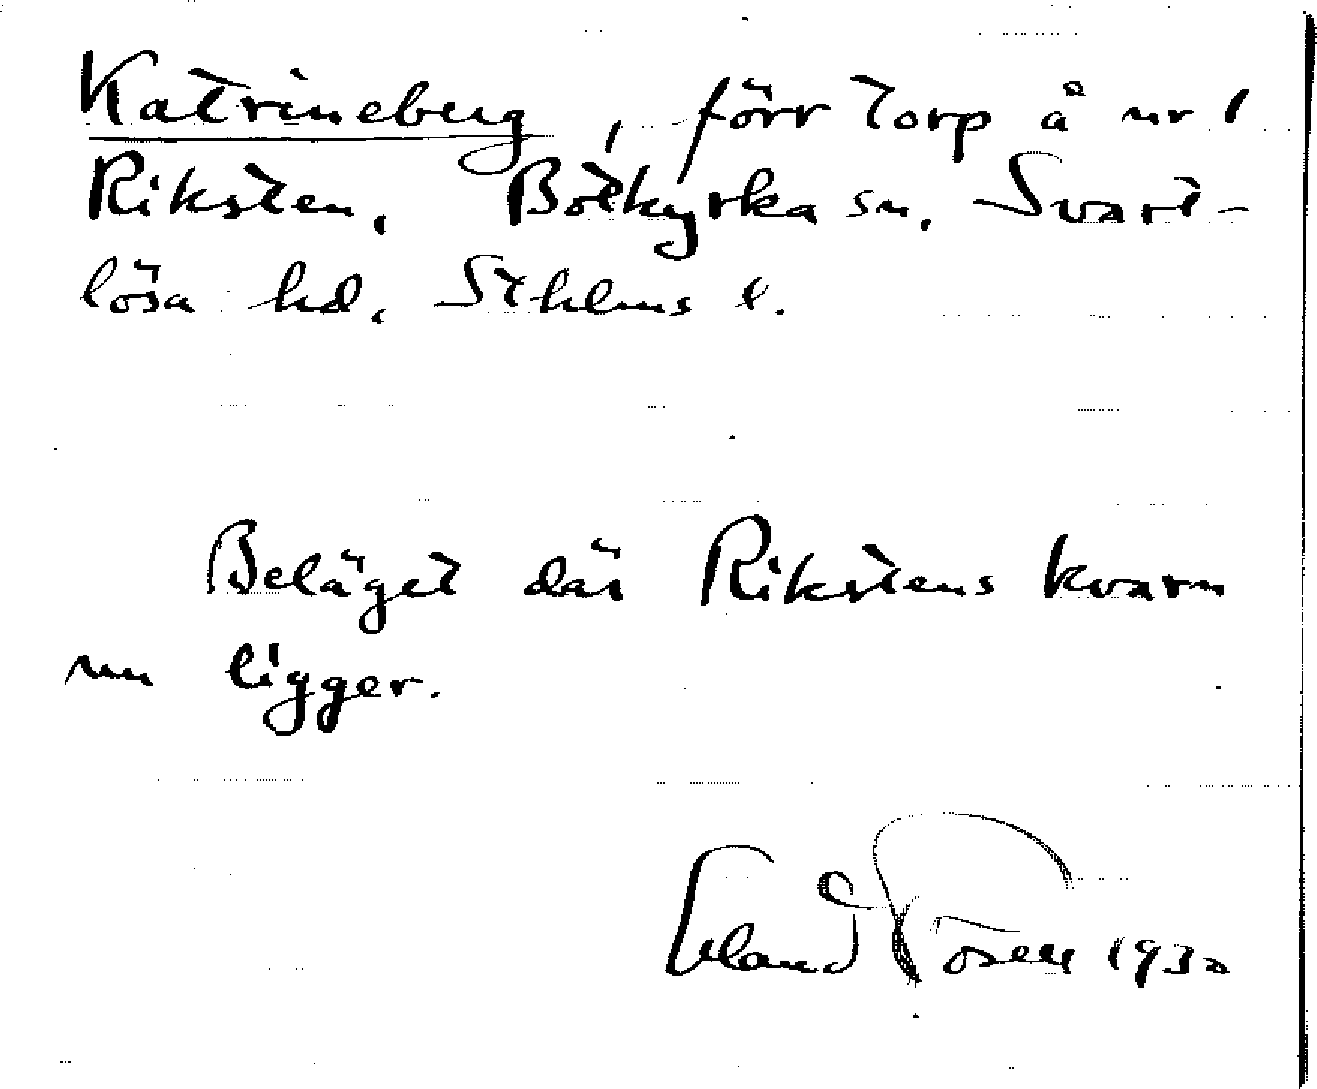 Katrineberg, förr torp å nr 1
Riksten, Botkyrka sn. Svart-
lösa hd. Sthlms l.
Beläget där Rikstens kvarn
nu ligger.
Erland Rosell 1930